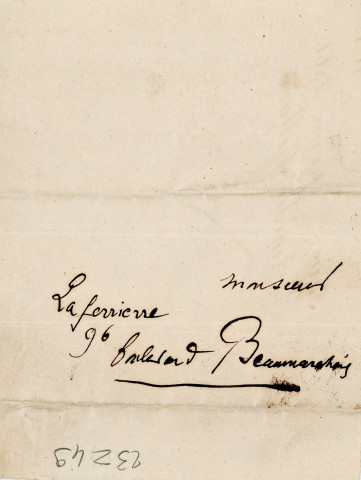 Monsieur
Laferrierre
96 boulevard Beaumarchais
23249